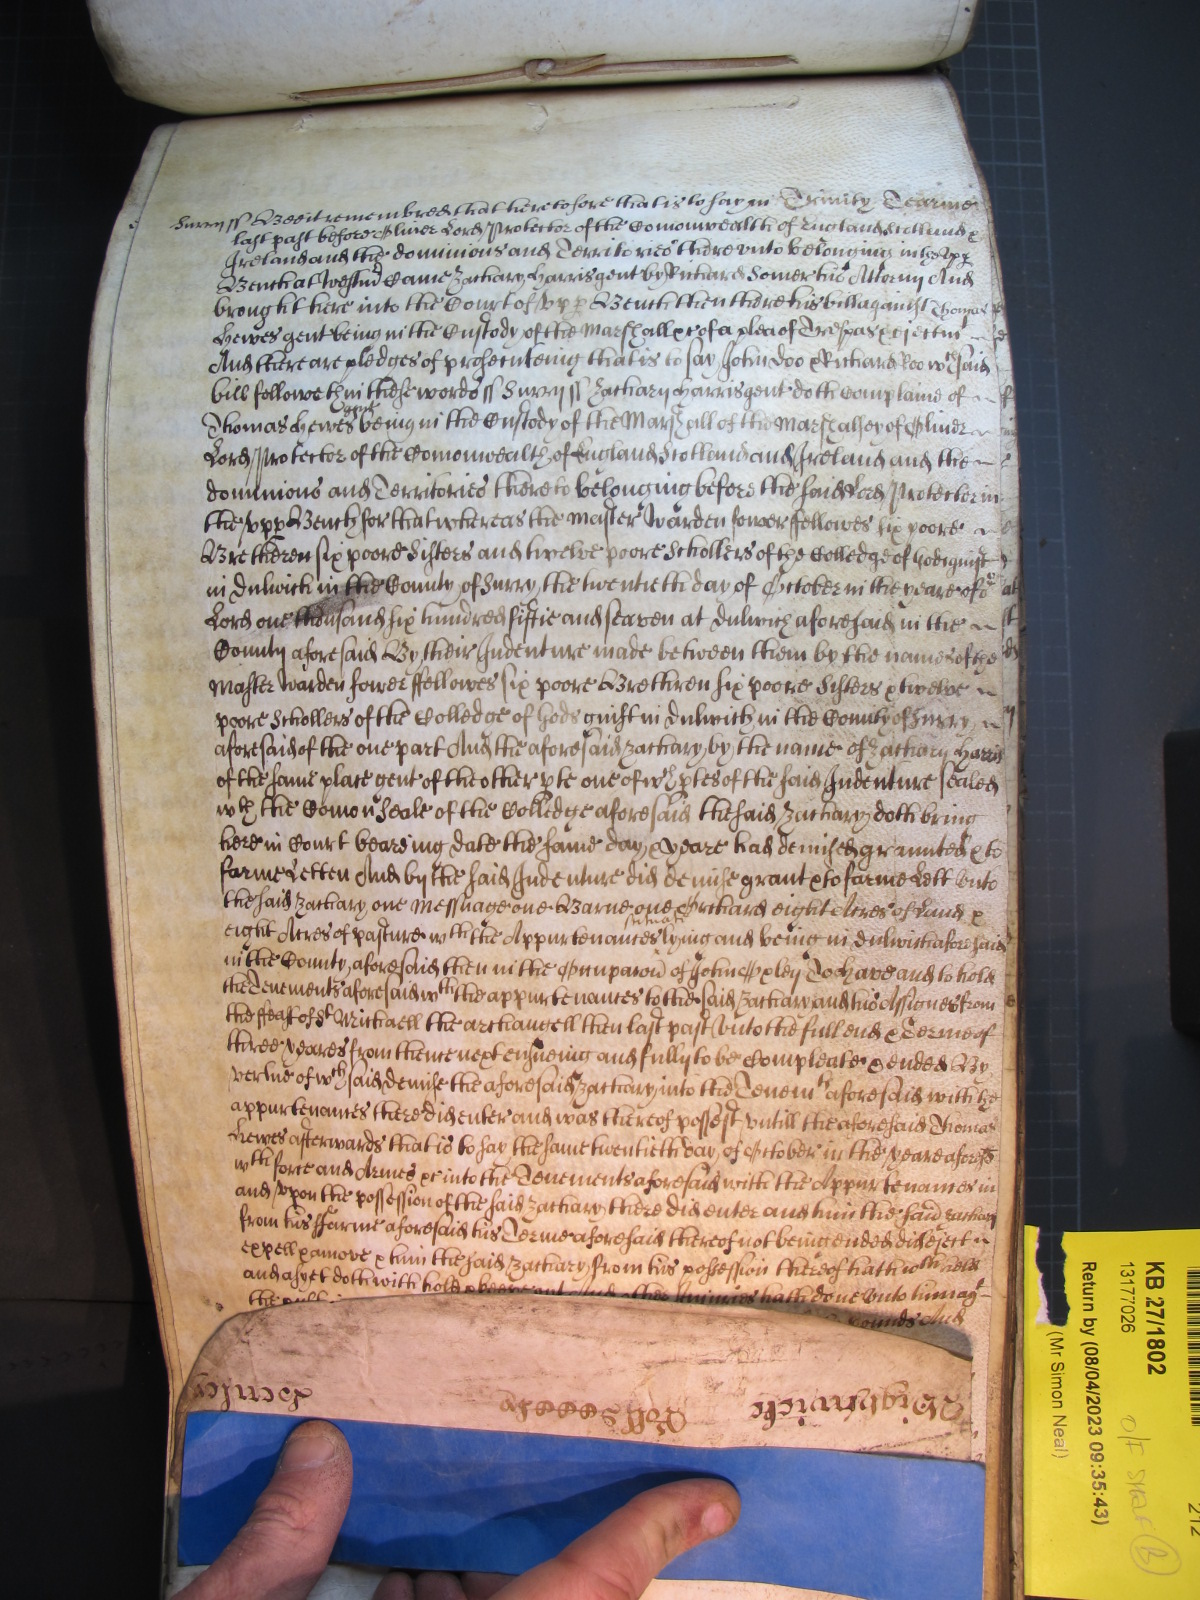 Surry ss Bee it remembred that heretofore that is to say in Trinity Tearme
last past before Oliver Lord Protector of the Comonwealth of England Scotland &
Ireland and the dominions and Territories there unto belonging in the upp
Bench at Westm Came Zachary Harris gent by Richard Somer his Attorny And
brought here into the Court of upp Bench then there his bill against Thomas
Hewes gent being in the Custody of the Marshall &c of a plea of Trespas & ejectmt
And there are pledges of prosecuteing that is to say John Doo & Richard Roo wch said
bill followeth in these words ss Surry ss Zachary Harris gent doth Complaine of
Thomas Hewes gent being in the Custody of the Marshall of the Marshalsey of Oliver
Lord Protector of the Comonwealth of England Scotland and Ireland and the
dominions and Territories thereto belonging before the said Lord Protector in
the upp Bench for that whereas the Master Warden fower ffellowes six poore
Bretheren six poore Sisters and twelve poore Schollers of the Colledge of Godsguift
in Dulwich in the County of Surry the twentieth day of October in the yeare of or
Lord one thousand six hundred fiftie and seaven at Dulwich aforesaid in the
County aforesaid By their Indenture made betweene them by the name of the
Master Warden fower ffellowes six poore Brethren six poore Sisters & twelve
poore Schollers of the Colledge of Gods guift in Dulwich in the County of Surry
aforesaid of the one part And the aforesaid Zachary by the name of Zachary Harris
of the same place gent of the other pte one of wch ptes of the said Indenture sealed
wth the Comon Seale of the Colledge aforesaid the said Zachary doth bring
here in Court beareing date the same day & yeare had demised graunted & to
farme Letten And by the said Indenture did demise grant & to farme Lett unto
the said Zachary one Messuage one Barne one Orchard eight Acres of Land &
eight Acres of pasture wth the Appurtenances situate lying and being in Dulwich aforesaid
in the County aforesaid then in the Occupacon of John Oxley To have and to hold
the Tenements aforesaid wth the appurtenances to the said Zachary and his Assignes from
the ffeast of St Michaell the archangell then last past unto the full end & Terme of
three yeares from thence next ensueing and fully to be Compleate & ended By
vertue of wch said demise the aforesaid Zachary into the Tenemts aforesaid with the
appurtenances there did enter and was thereof possest untill the aforesaid Thomas
Hewes afterwards that is to say the same twentieth day of October in the yeare aforesd
wth force and Armes &c into the Tenements aforesaid with the Appurtenances in
and upon the possession of the said Zachary there did enter and him the said Zachary
from his ffarme aforesaid his Terme aforesaid thereof not being ended did eject
expell & amove & him the said Zachary from his possession thereof hath
and as yet doth with hold & keepe out And other Injuries hath done unto him ag
the
pounds And
Wightwicke
KB 27/1802
13177026
Return by (08/04/2023 09:35:43)
(Mr Simon Neal)